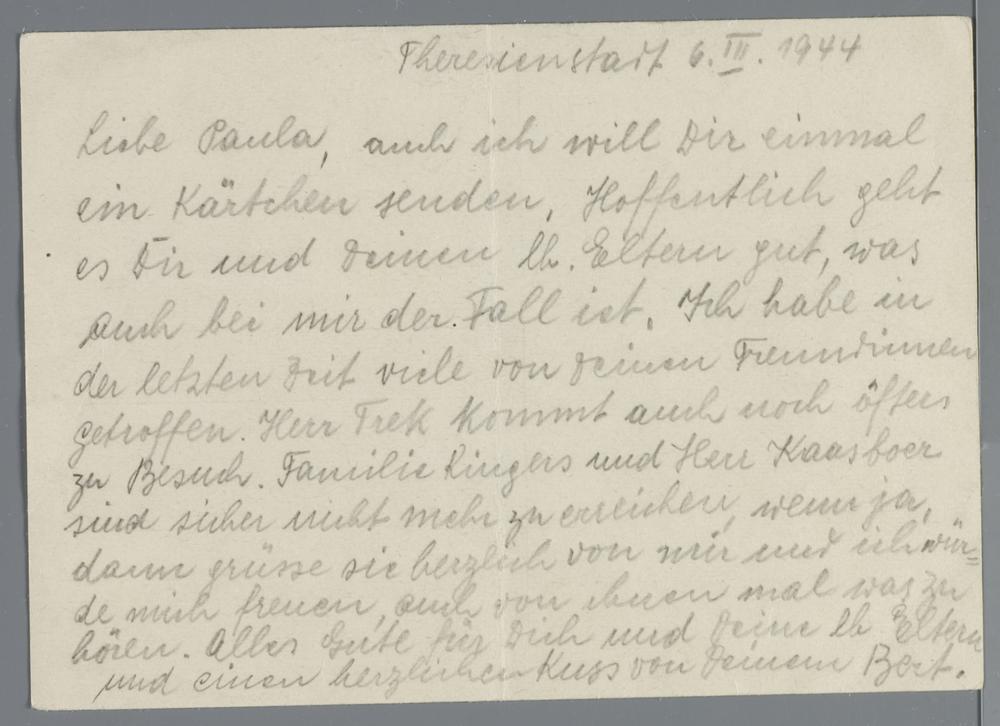 Theresienstadt 6. III. 1944
Liebe Paula, auch ich will Dir einmal
ein Kärtchen senden, Hoffentlich geht
es Dir und Deinen lb. Eltern gut, was
auch bei mir der Fall ist. Ich habe in
der letzten Zeit viele von Deinen Freundinnen
getroffen. Herr Trek kommt auch noch öfters
zu Besuch. Familie Ringers und Herr Kaasboer
sind sicher nicht mehr zu erreichen, wenn ja,
dann grüsse sie herzlich von mir und ich wür=
de mich freuen, auch von ihnen mal was zu
hören. Alles Gute für Dich und Deine lb Eltern
und einen herzlichen Kuss von Deinem Bert.